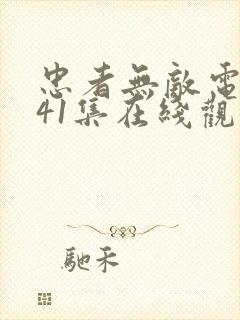 忠者無敵電
41集在綫觀
馳禾